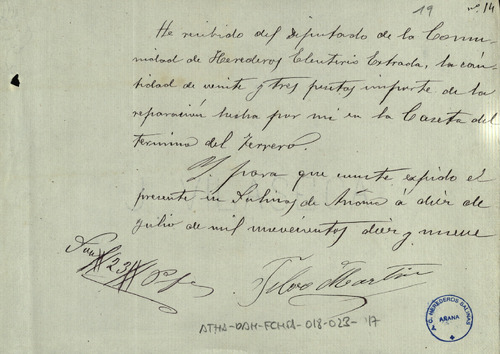 19 nº 14
He recibido del Diputado de la Comu-
nidad de Herederos Eleuterio Extrada, la can-
tidad de veinte y tres pestas importe de la
reparación hecha por mi en la Caseta del
termino del Ferrero.
Y para que conste expido el
presente en Salinas de Anana á diez de
julio de mil novecientos diez y nueve
Son 23 Ps
Silvo Martin
ATHA-DAH-FCHSA-018-023-17
C. HEREDEROS SALINAS
AÑANA